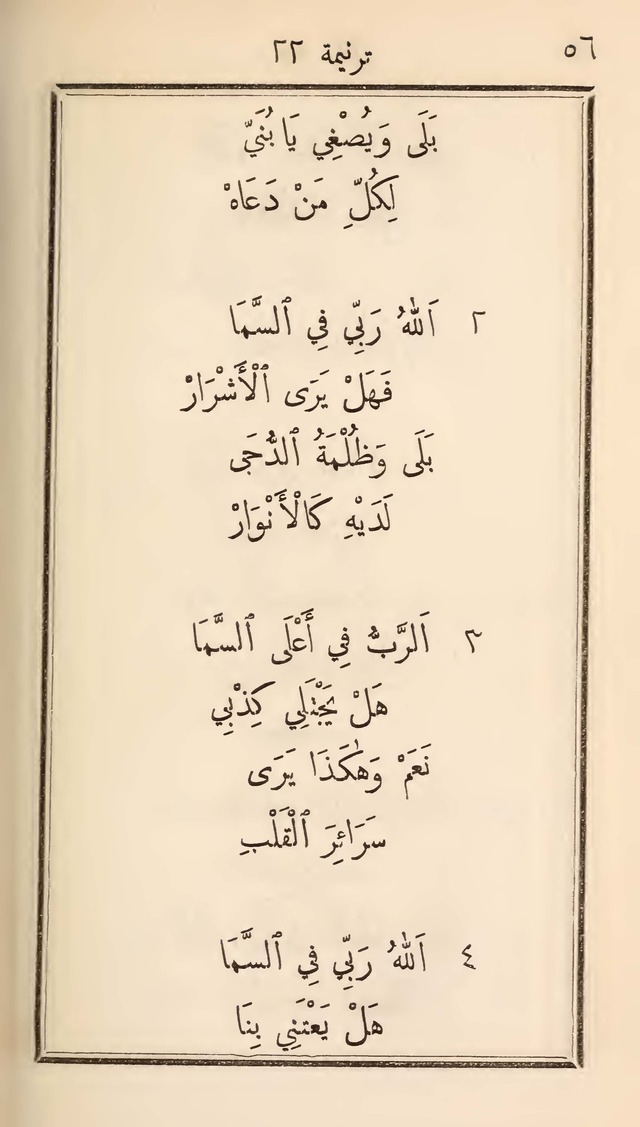 ٥٦
ترنيمة ٢٢
بَلَى وَيُصْغِي يَا بُنَيّ
لِكُلِّ مَنْ دَعَاهْ
٢ اَللهُ رَبِّي فِي ٱلسَّمَا
فَهَلْ يَرَى ٱلْأَشْرَارْ
بَلَى وَظُلْمَةُ ٱلدُّجَى
لَدَيْهِ كَالْأَنْوَارْ
٣ اَلرَّبُّ فِي أَعْلَى ٱلسَّمَا
هَلْ يَجْتَلِي كِذْبِي
نَعَمْ وَهٰكَذَا يَرَى
سَرَائِرَ ٱلْقَلْبِ
٤ اَللهُ رَبِّي فِي ٱلسَّمَا
هَلْ يَعْتَنِي بِنَا